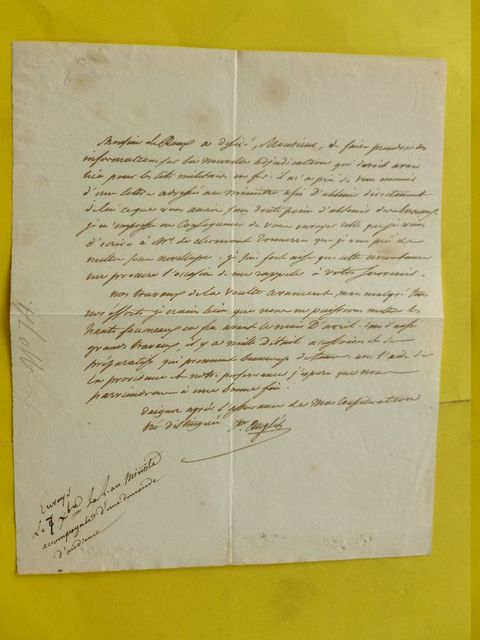 Monsieur LeRoux a desiré, Monsieur, de faire prendre des
informations sur la nouvelle adjudication qui doit avoir
lieu pour les lits militaires en fer. il m'a prié de vous munir
d'une lettre adressée au ministre afin d'obtenir directement
de lui ce que vous auriez sans doute peine d'obtenir des bureaux.
je m'empresse en conséquence de vous envoyer celle que je viens
d'écrire à Mr. de clermont tonnerre que je vous prie de
mettre sous enveloppe. je suis fort aise que cette circonstance
me procure l'occasion de me rappeler à votre souvenir.
nos travaux de la voulte avancent, mais malgré tous
nos efforts je crains bien que nous ne puissions mettre les
hauts fourneaux en feu avant le mois d'avril.
grands travaux, il y a mille détails accessoires et de
préparatifs qui prennent beaucoup de tems. avec l'aide de
la providence et notre persévérance j'espère que nous
parviendrons à une bonne fin.
daignez agréer l'assurance de ma considération
très distinguée
envoyé
Le 7 xbre la l. au Ministre
accompagnée d'une demande
d'audience